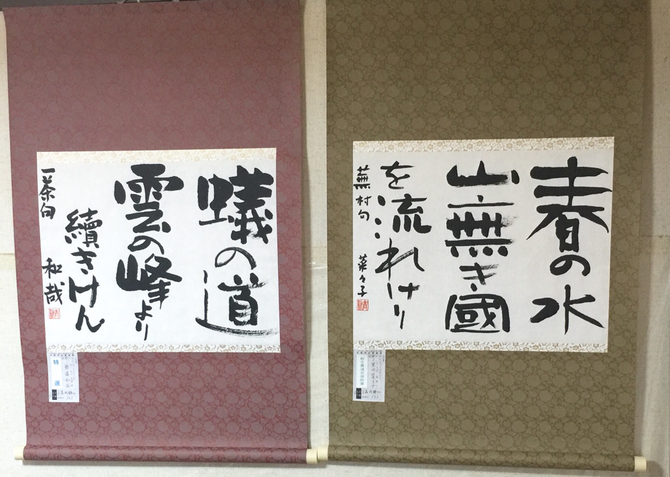 春の水
山無き國
を流れけり
蕪村句 菜々子
蟻の道
雲の峰より
續きけん
一茶句 和哉
特選